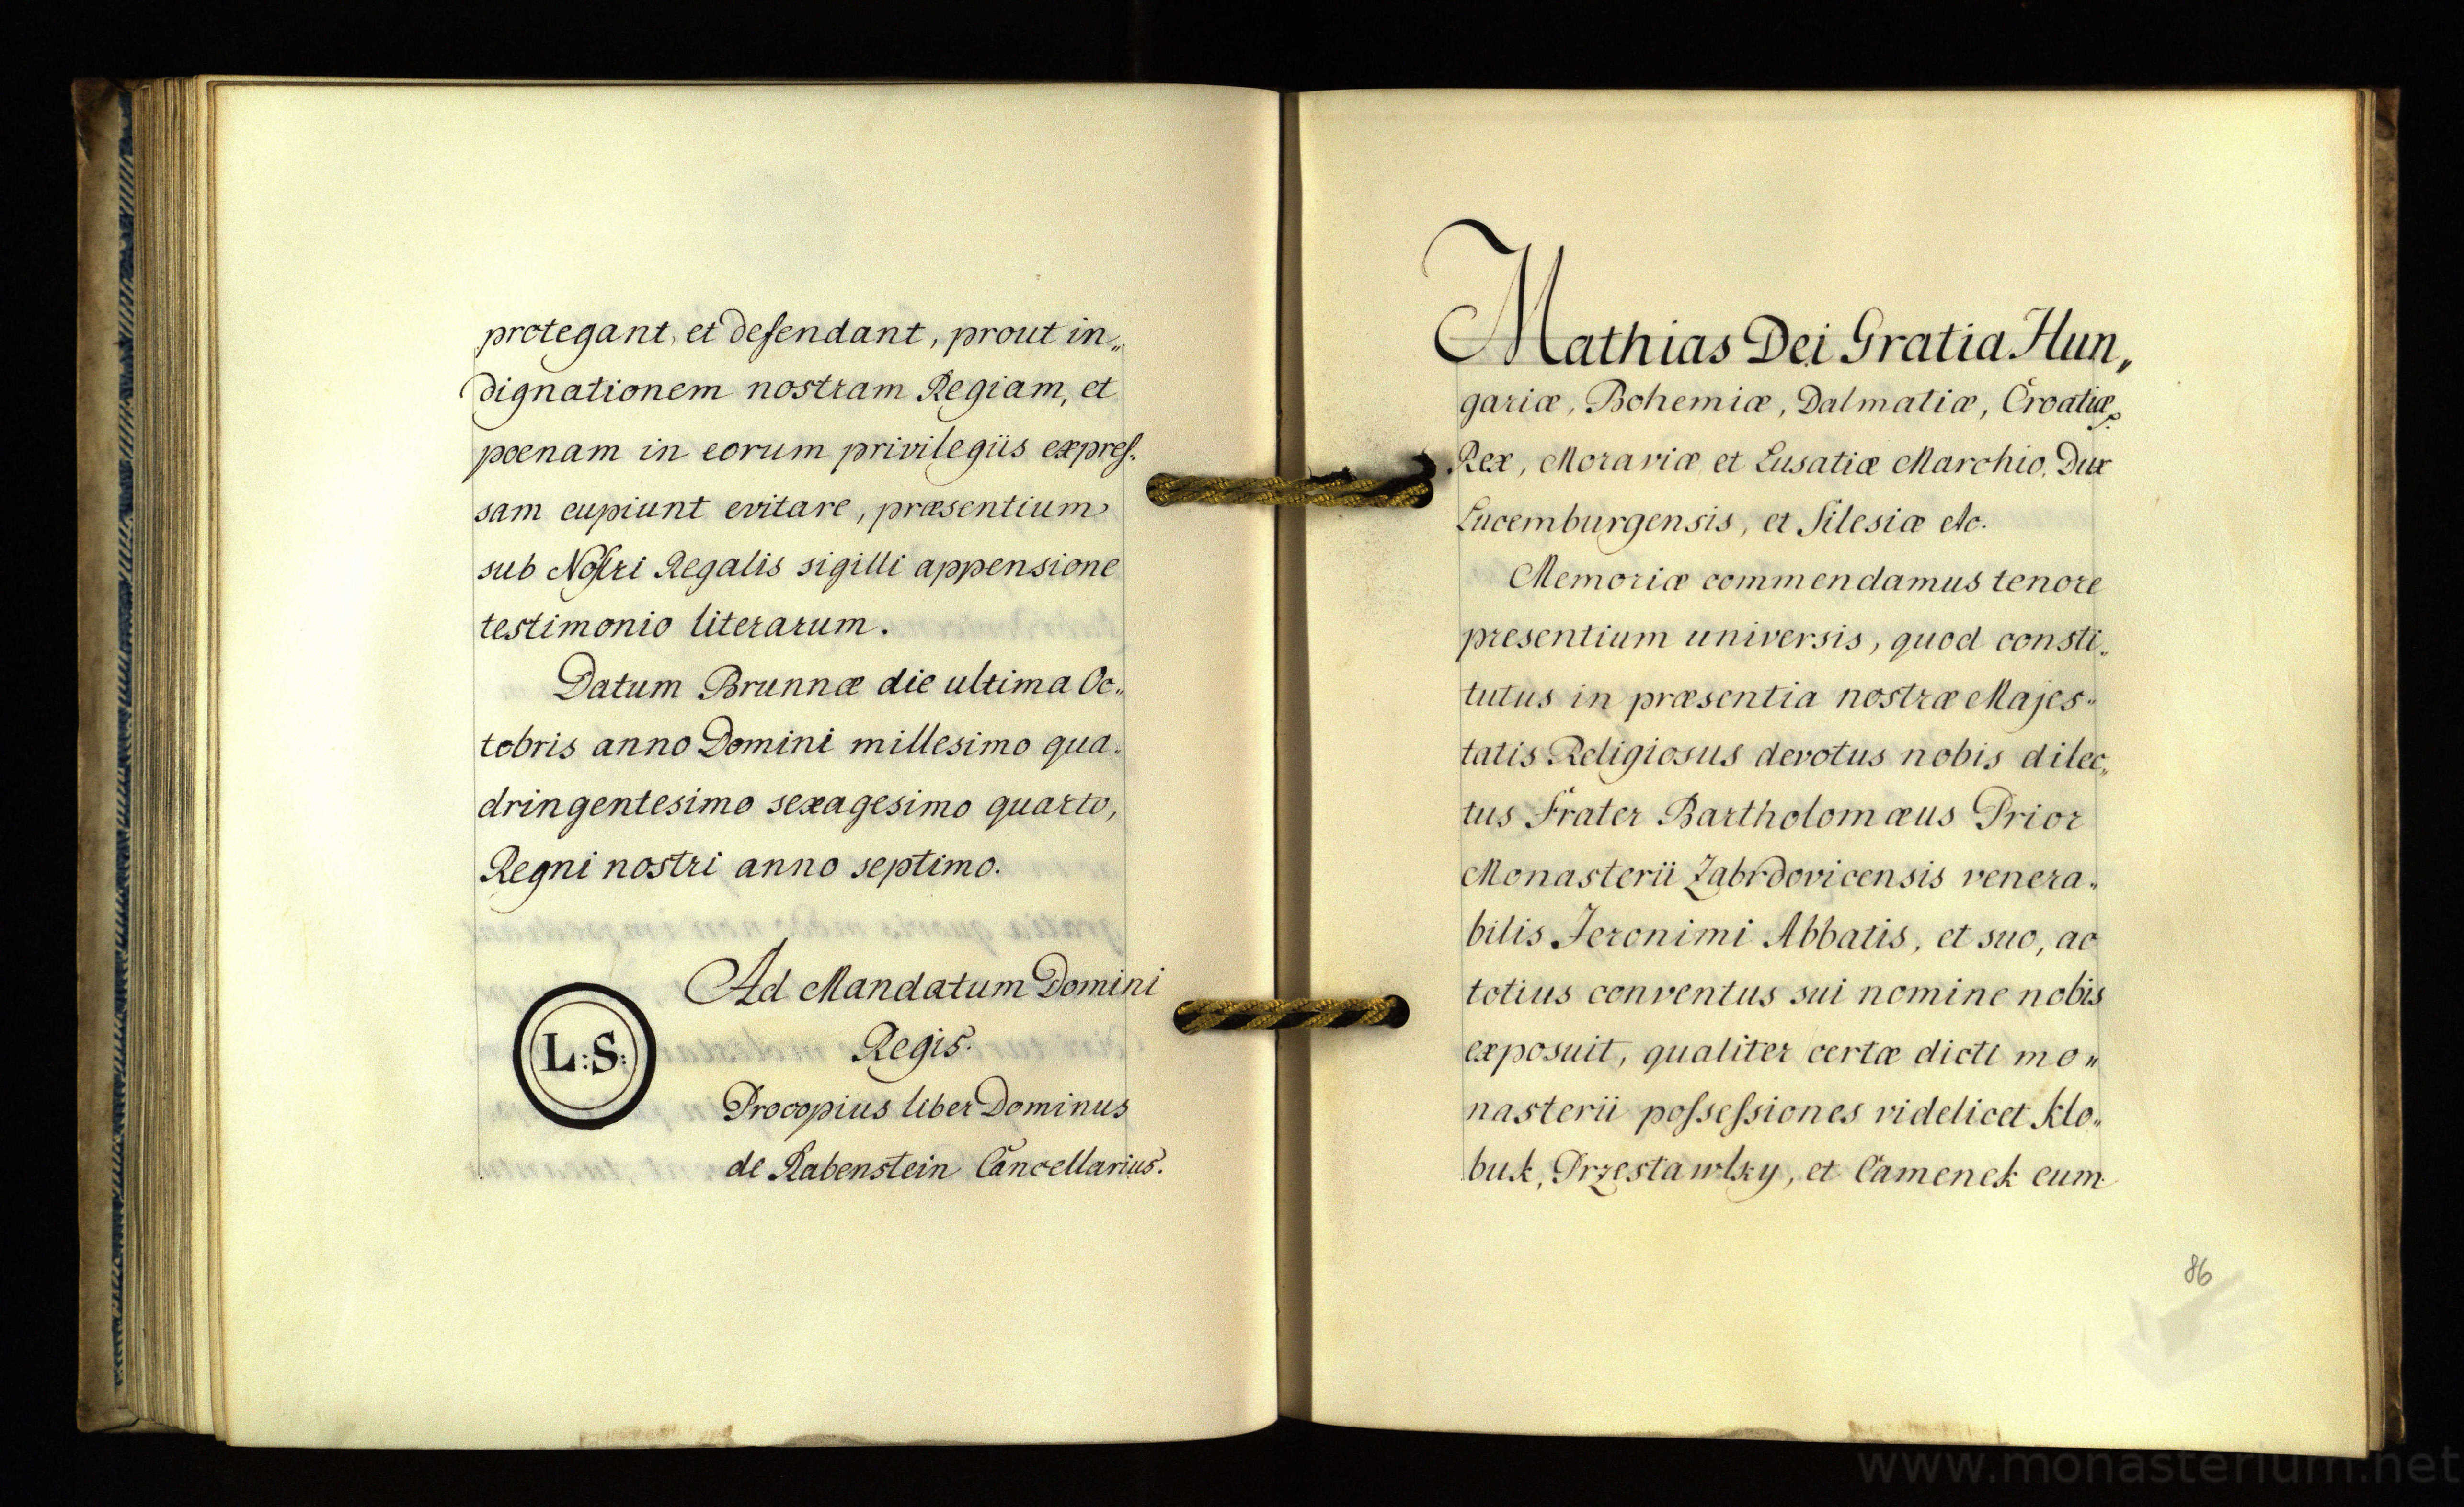 protegant, et defendant, prout in„
dignationem nostram Regiam, et
poenam in eorum privilegiis expreſ-
sam cupiunt evitare, præsentium
sub Noſtri Regalis sigilli appensione
testimonio literarum.
Datum Brunnæ die ultima Oc„
tobris anno Domini millesimo qua„
dringentesimo sexagesimo quarto,
Regni nostri anno septimo.
Ad Mandatum Domini
Regis.
L:S:
Procopius liber Dominus
de Rabenstein Cancellarius.
Mathias Dei Gratia Hun„
gariæ, Bohemiæ, Dalmatiæ, Croatiæ
Rex, Moraviæ et Lusatiæ Marchio, Dux
Lucemburgensis, et Silesiæ etc.
Memoriæ commendamus tenore
presentium universis, quod consti„
tutus in præsentia nostræ Majes„
tatis Religiosus devotus nobis dilec„
tus Frater Bartholomæus Prior
Monasterii Zabrdovicensis venera„
bilis Jeronimi Abbatis, et suo, ac
totius conventus sui nomine nobis
exposuit, qualiter certæ dicti mo„
nasterii poſseſsiones videlicet Klo„
buk, Przestawlky, et Camenek cum
86
www.monasterium.net